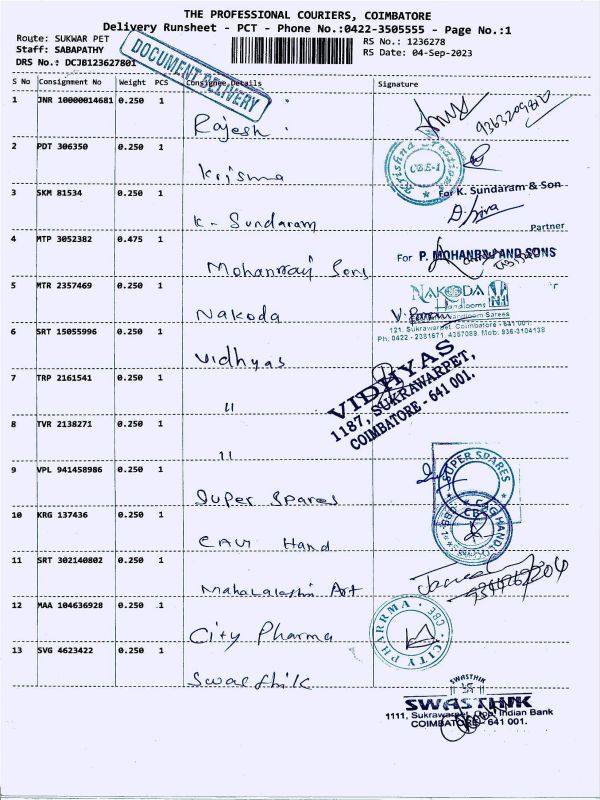 THE PROFESSIONAL COURIERS, COIMBATORE
Delivery Runsheet - PCT - Phone No.:0422-3505555 - Page No.:1
Route: SUKWAR PET
Staff: SABAPATHY
DRS No.: DCJB123627801
RS No.: 1236278
RS Date: 04-Sep-2023
DOCUMENT DELIVERY
S No Consignment No Weight PCS Consignee Details Signature
1 JNR 10000014681 0.250 1 Rajesh
2 PDT 306350 0.250 1 Krisma
Krishna Creations CBE-1
3 SKM 81534 0.250 1 K - Sundaram
For K. Sundaram & Son
Partner
4 MTP 3052382 0.475 1 Mohanraj Sons
For P. MOHANRAJ AND SONS
5 MTR 2357469 0.250 1 Nakoda
NAKODA
Handlooms
Handloom Sarees
121, Sukrawarpet, Coimbatore - 641 001.
Ph: 0422 - 2381671, 4357089, Mob: 936-3104138
6 SRT 15055996 0.250 1 Vidhyas
VIDHYAS
1187, SUKRAWARPET,
COIMBATORE - 641 001.
7 TRP 2161541 0.250 1 11
8 TVR 2138271 0.250 1 11
9 VPL 941458986 0.250 1 Super Spares
SUPER SPARES
10 KRG 137436 0.250 1 Hand
11 SRT 302140802 0.250 1 Mahalakshmi Art
12 MAA 104636928 0.250 1 City Pharma
CITY PHARRMA CBE
13 SVG 4623422 0.250 1 Swasthik
SWASTHIK
SWASTHIK
1111, Sukrawarpet, Opp. Indian Bank
COIMBATORE - 641 001.